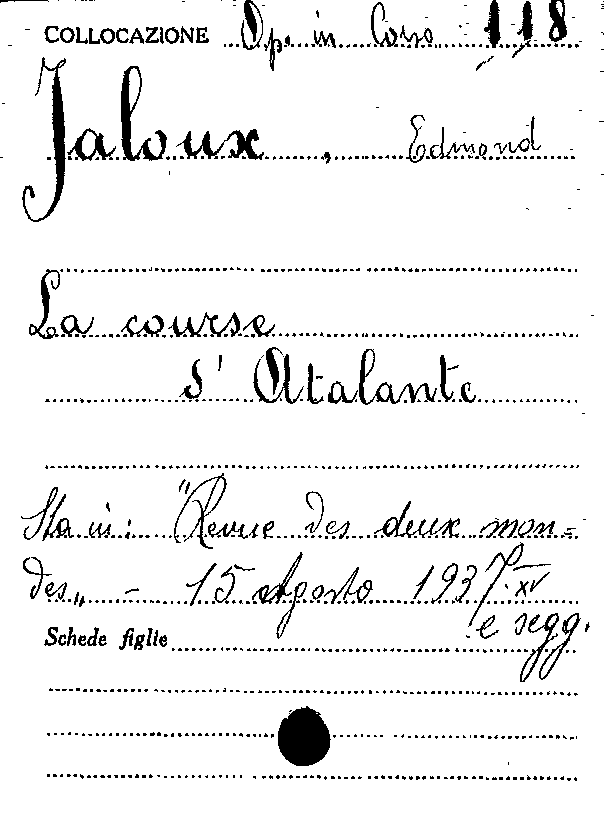 COLLOCAZIONE Op. in Corso 118
Jaloux, Edmond
La course
d'Atalante
Sta in: "Revue des deux mon=
des„ - 15 agosto 1937. XV
e segg.
Schede figlie